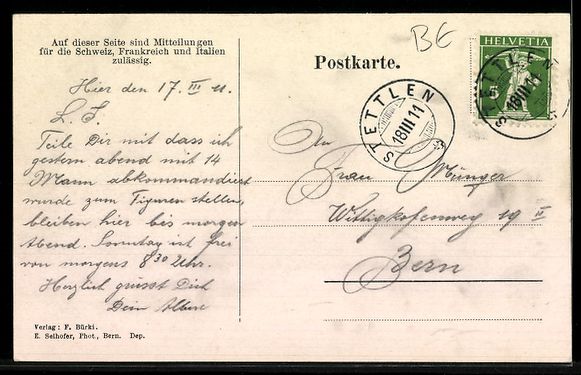 Auf dieser Seite sind Mitteilungen
für die Schweiz, Frankreich und Italien
zulässig.
Hier den 17. III 11.
L. F.
Teile Dir mit dass ich
gestern abend mit 14
Mann abkommandiert
wurde zum Figuren stellen,
bleiben hier bis morgen
Abend. Sonntag ist frei
von morgens 8 30 Uhr.
Herzlich grüsst Dich
Dein
Verlag: F. Bürki.
E. Selhofer, Phot., Bern. Dep.
BE
Postkarte.
HELVETIA
5
STETTLEN
18 III 11
STETTLEN
18 III 11
An
Frau Münger
Wittigkofenweg 19 II
Bern